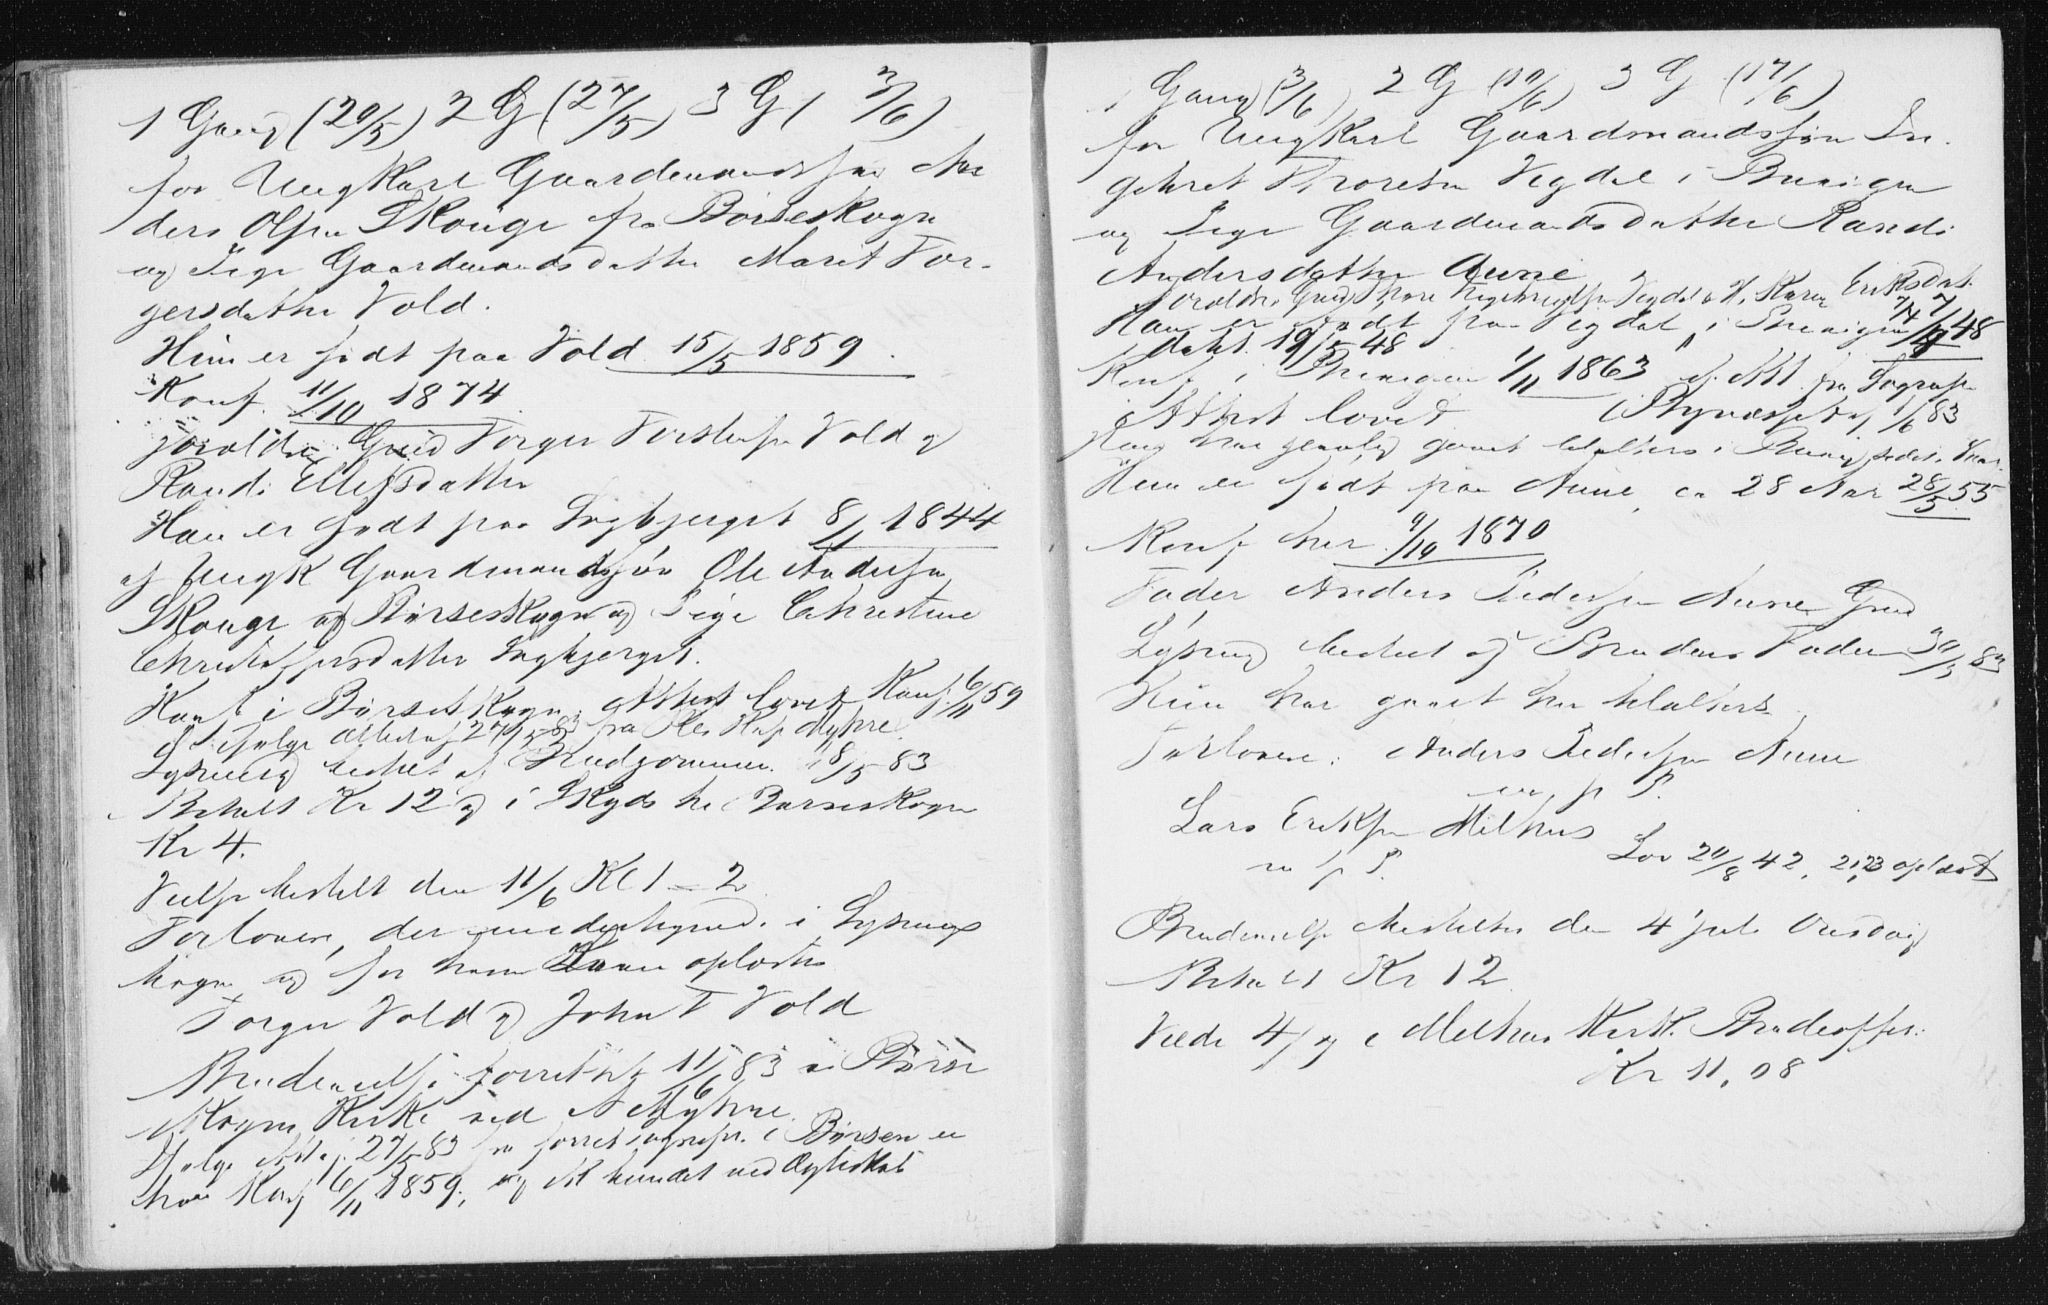 1 Gang (20/5) 2 G (27/5) 3 G (3/6)
for Ungkarl Gaardmandssøn An
ders Olsen Skouge fra Børseskogn
og Pige Gaardmandsdatter Marit Tor-
gersdatter Vold.
Hun er født paa Vold 15/5 1859.
Konf. 11/10 1874
Forældre Grd Torger Torstensen Vold og
Randi Ellefsdatter
Han er født paa 8/1 1844
af Ungk Gaardmandssøn Ole Andersen
Skouge af Børseskogn og Pige Christine
Christoffersdatter
Konf i Børseskogn, Attest lovet Konf. 6/11 59
Ifølge Attest af 27/5 83 fra Res Kap Myhre
Lysning bestilt af Brudgommen 18/5 83
Betalt Kr 12 og i Skyds til Børseskogn
Kr 4.
Vielse bestilt den 11/6 Kl 1 - 2
Forlovere, der undertegned. i Lysnings
bogen og for hvem Loven oplæstes
Torger Vold og John T Vold
Brudevielse forrettet 11/6 83 i Børse
skogns Kirke ved Myhre.
Ifølge Att af 27/5 83 fra i Børsen er
han Konf 6/11 1859, og ei bundet ved Ægteskab
1 Gang (3/6) 2 G (10/6) 3 G (17/6)
for Ungkarl Gaardmandssøn In
gebret Thoresen Vegdal i Buvigen
og Pige Gaardmandsdatter Randi
Andersdatter Aune
Forældre Grd Thore Ingebrigtsen Vegdal & H. Karen Eriksdat.
Han er født paa Vegdal i Buvigen 7/4 48
døbt 19/5 48
Konf i Buvigen 1/11 1863 Att. fra
Attest lovet (Bynæsset af 1/6 83
Han har gaaet til Alters i Buvig sidst. Vaar
Hun er født paa Aune ca 28 Aar 28/5 55
Konf her 9/10 1870
Fader Anders Pedersen Aune Grd
Lysning bestilt af Brudens Fader 30/5 83
Hun har gaaet her til Alters
Forlovere: Anders Pedersen Aune
m. p. P.
Lars Eriksen Melhus
m. p. P. Lov 20/8 42, 21,23 oplæst
Brudevielse bestiltes den 4 Juli Onsdag
Betalt Kr 12
Viede 4/7 i Melhus Kirk. Brudeoffer
Kr 11,08